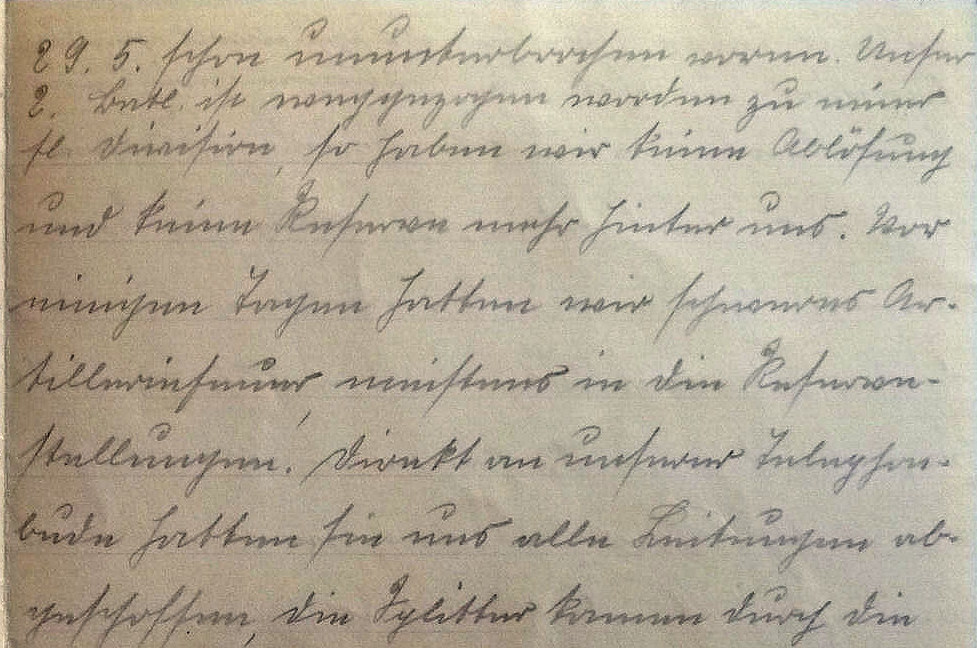 29. 5. schon ununterbrochen vorne. Unser
2. Batl. ist weggezogen worden zu einer
fl. Division, so haben wir keine Ablösung
und keine Reserve mehr hinter uns. Vor
einigen Tagen hatten wir schweres Ar-
tilleriefeuer, meistens in den Reserve-
stellungen. Direkt an unserer Telephon-
bude hatten sie uns alle Leitungen ab-
geschossen, die Splitter kamen durch die